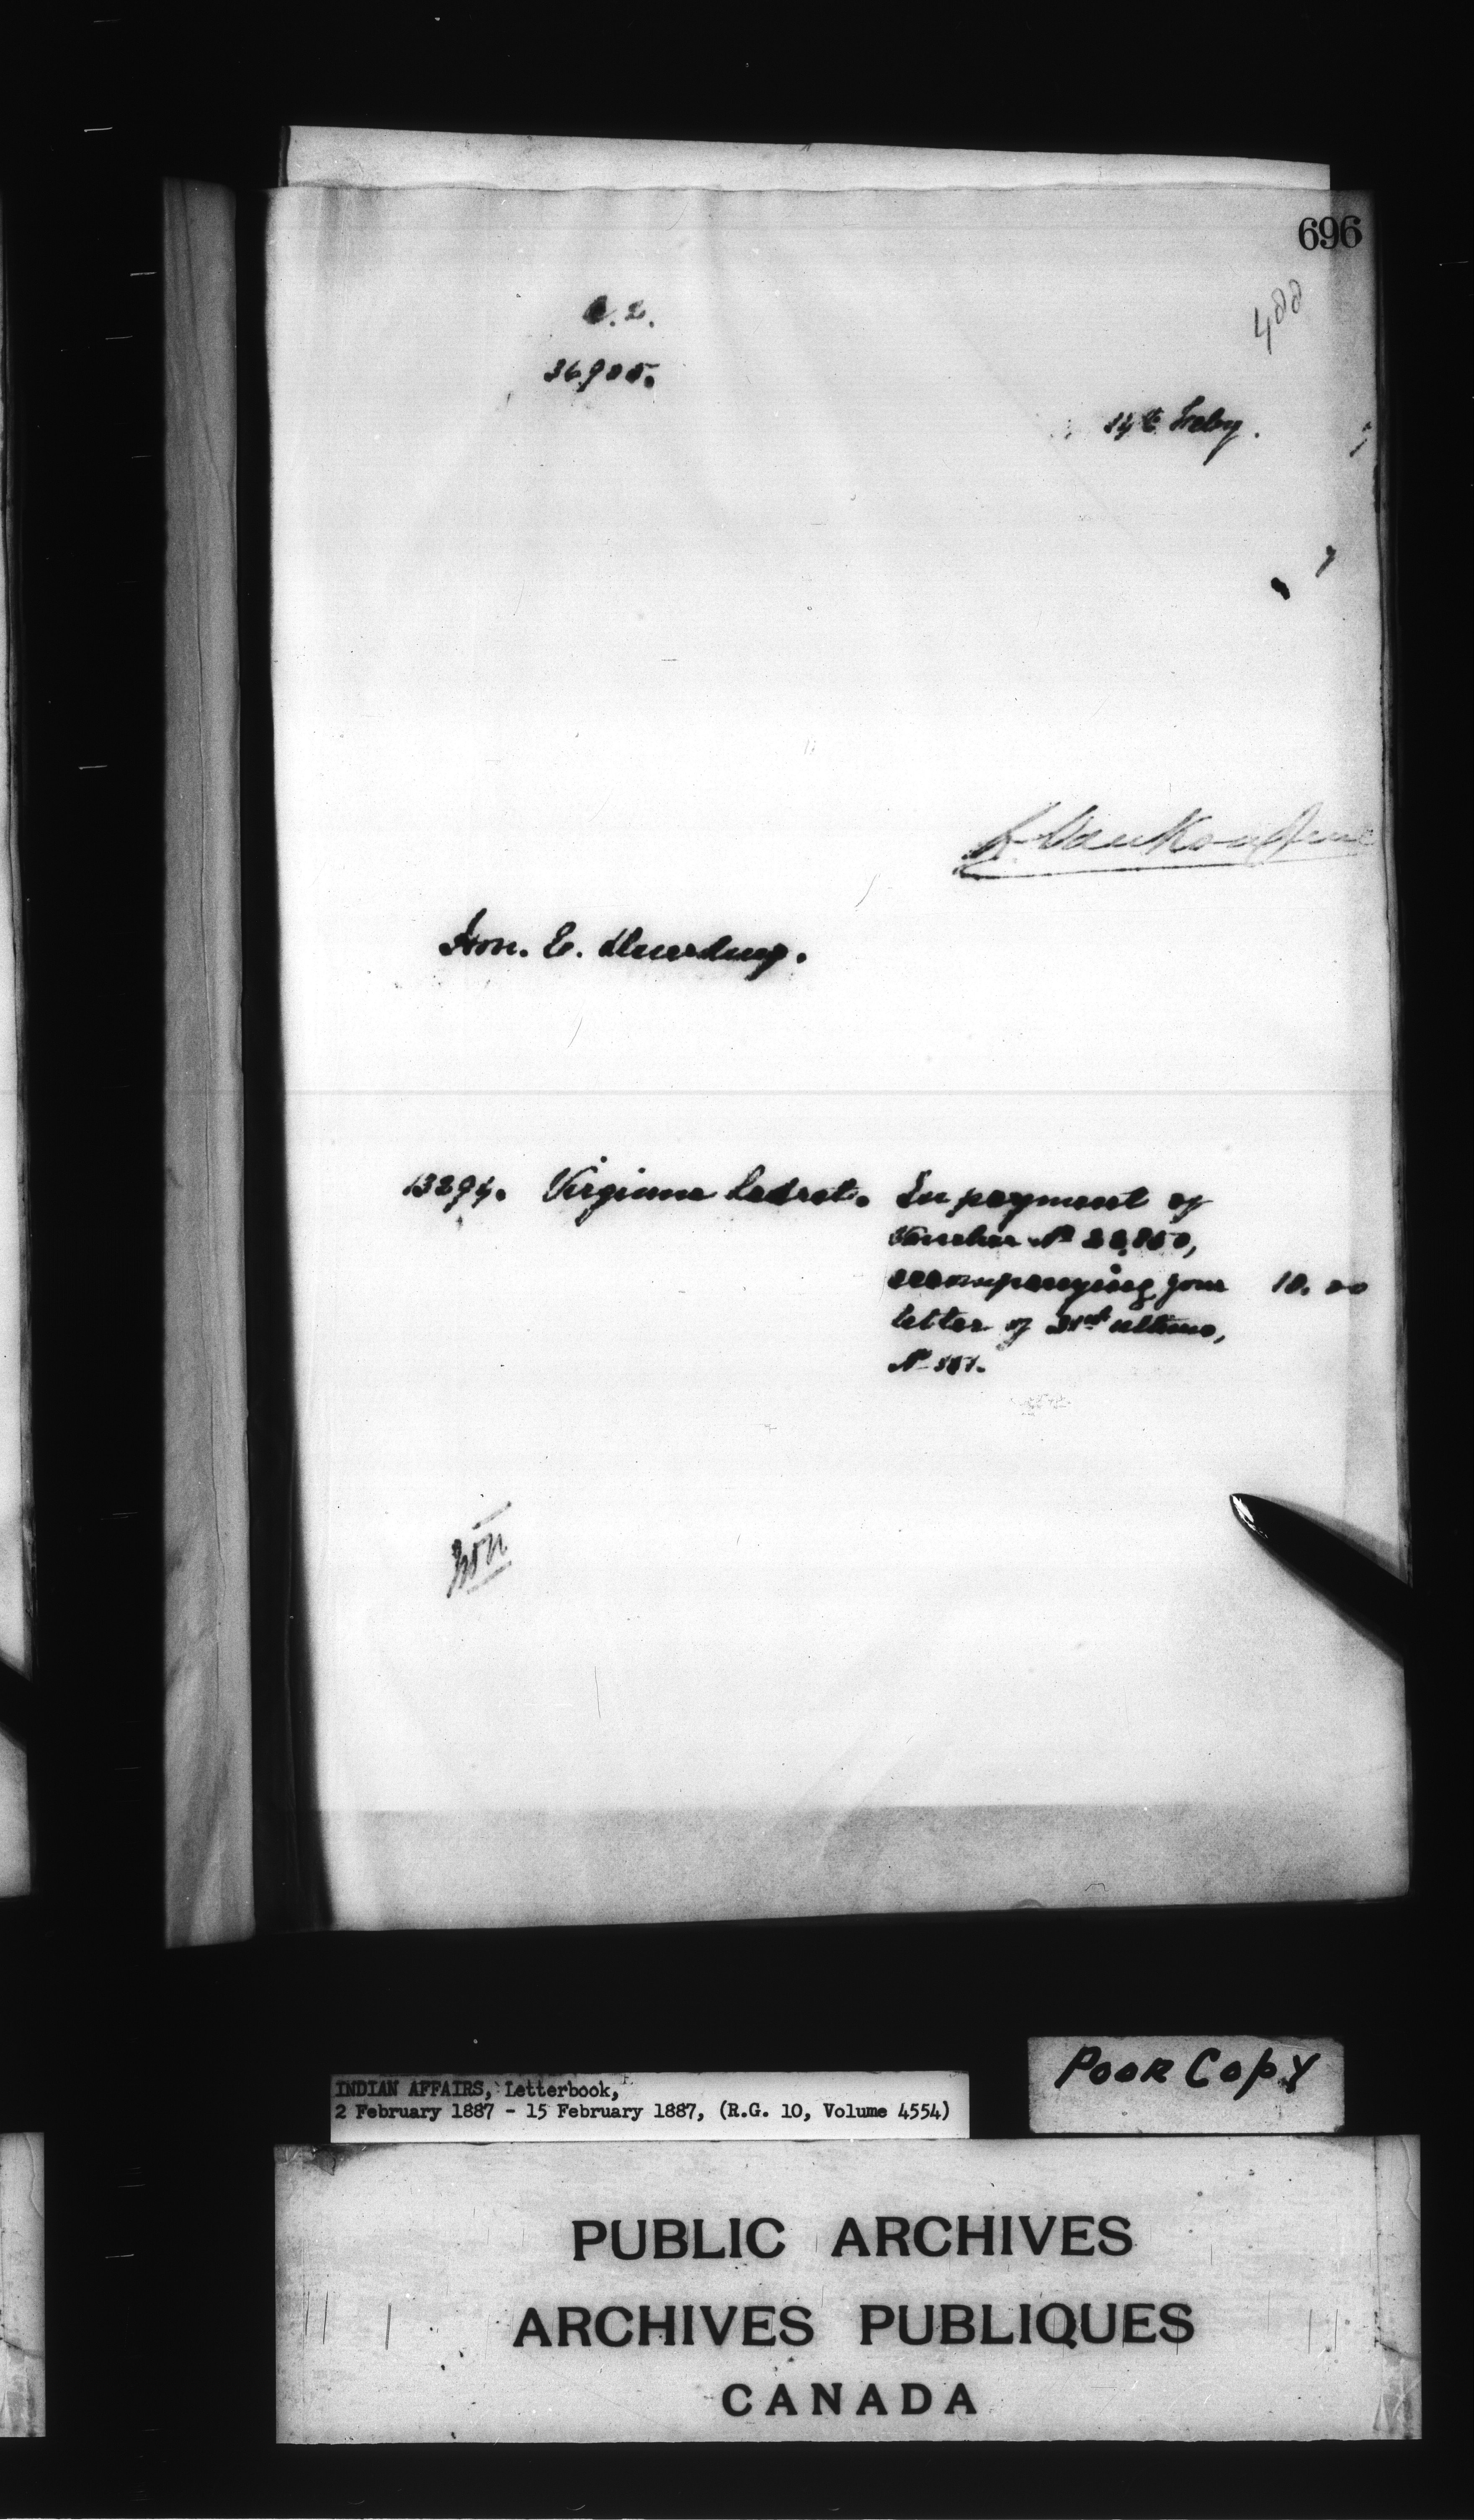 696
400
36905.
14th Feby.
L. VanKoughnet
Hon. E. Dewdney.
13294. Virginie Ledret. In payment of
Voucher No 22,850,
accompanying your 10.00
letter of 31st ultimo,
No
INDIAN AFFAIRS, Letterbook,
2 February 1887 - 15 February 1887, (R.G. 10, Volume 4554)
POOR COPY
PUBLIC ARCHIVES
ARCHIVES PUBLIQUES
CANADA